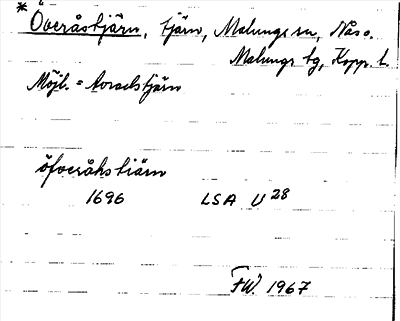 * Överåstjärn, tjärn, Malungs sn, Nås o.
Malungs tg, Kopp. l.
Möjl. = Avradstjärn
öfveråhs tiärn
1696 LSA U 28
FW. 1967